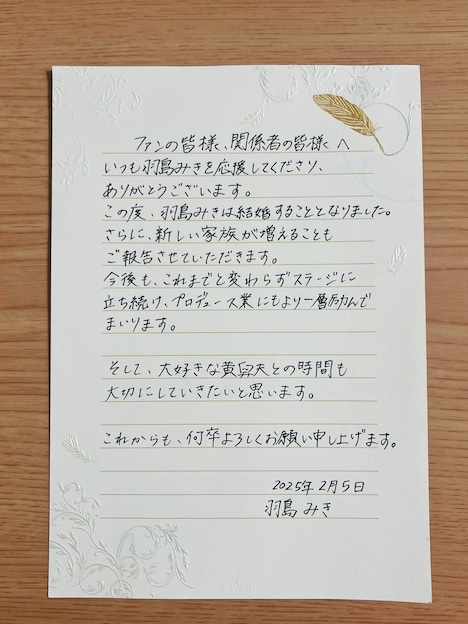 ファンの皆様、関係者の皆様へ
いつも羽島みきを応援してくださり、
ありがとうございます。
この度、羽島みきは結婚することとなりました。
さらに、新しい家族が増えることも
ご報告させていただきます。
今後も、これまでと変わらずステージに
立ち続け、プロデュース業にもより一層励んで
まいります。
そして、大好きな黄昇天との時間も
大切にしていきたいと思います。
これからも、何卒よろしくお願い申し上げます。
2025年2月5日
羽島みき